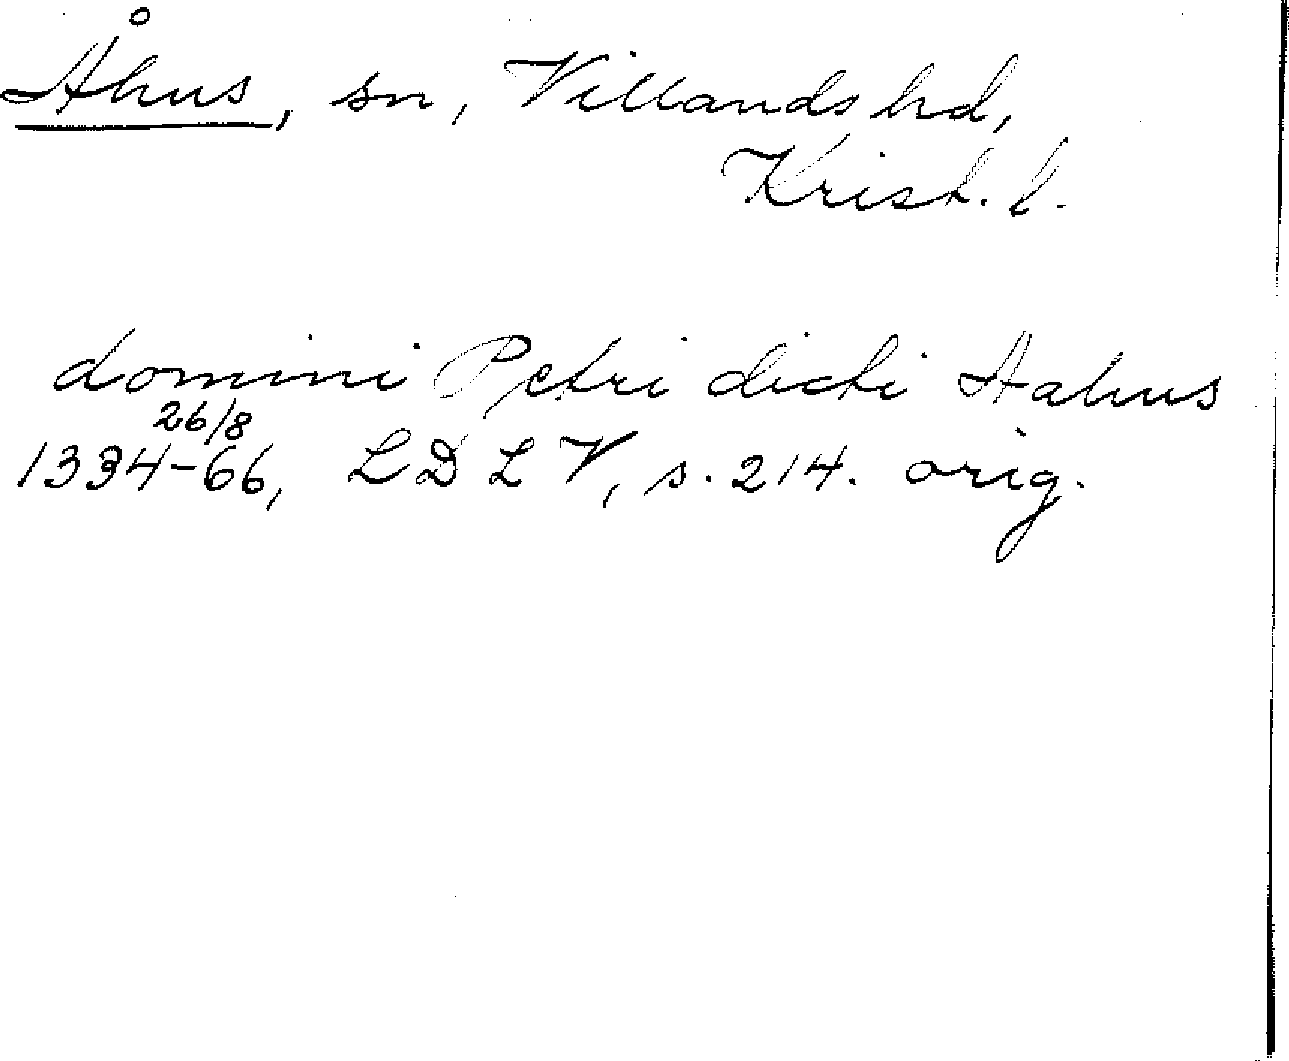 Åhus, sn, Villands hd,
Krist. l.
domini Petri dicti Aahus
26/8
1334-66, LDL V, s. 214. orig.